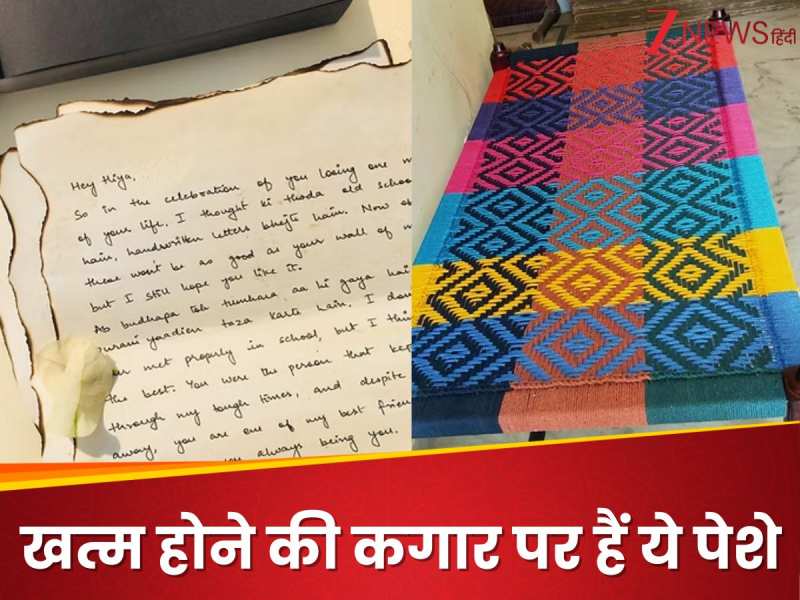 Z NEWS हिंदी
Hey Hiya,
So in the celebration of you losing one
of your life. I thought ki thoda old
hain, handwritten letters bhejte hain. Now
these won't be as good as your wall of
but I still hope you like it.
Ab budhapa toh tumhara aa hi gaya hai
yaadien taza karte hain. I
met properly in school, but I
the best. You were the person that
through my tough times, and despite
away, you are one of my best
always being you.
खत्म होने की कगार पर हैं ये पेशे